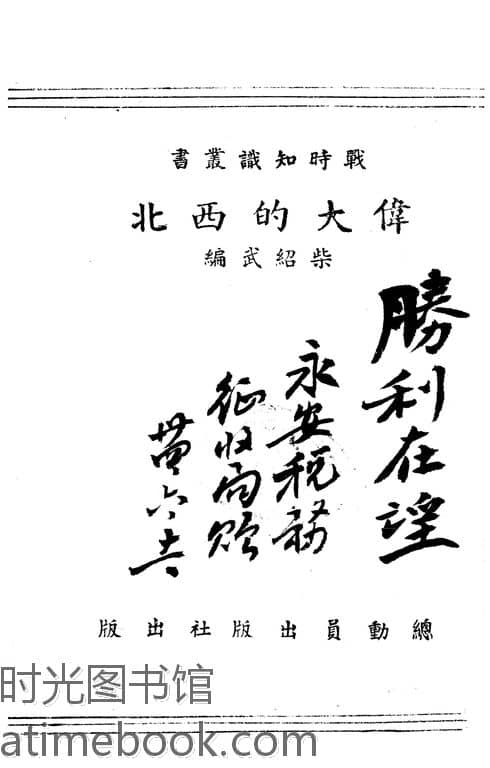 戰時知識叢書
偉大的西北
柴紹武編
勝利在望
永安税務
征收局贈
總動員出版社出版
时光图书馆
atimebook.com